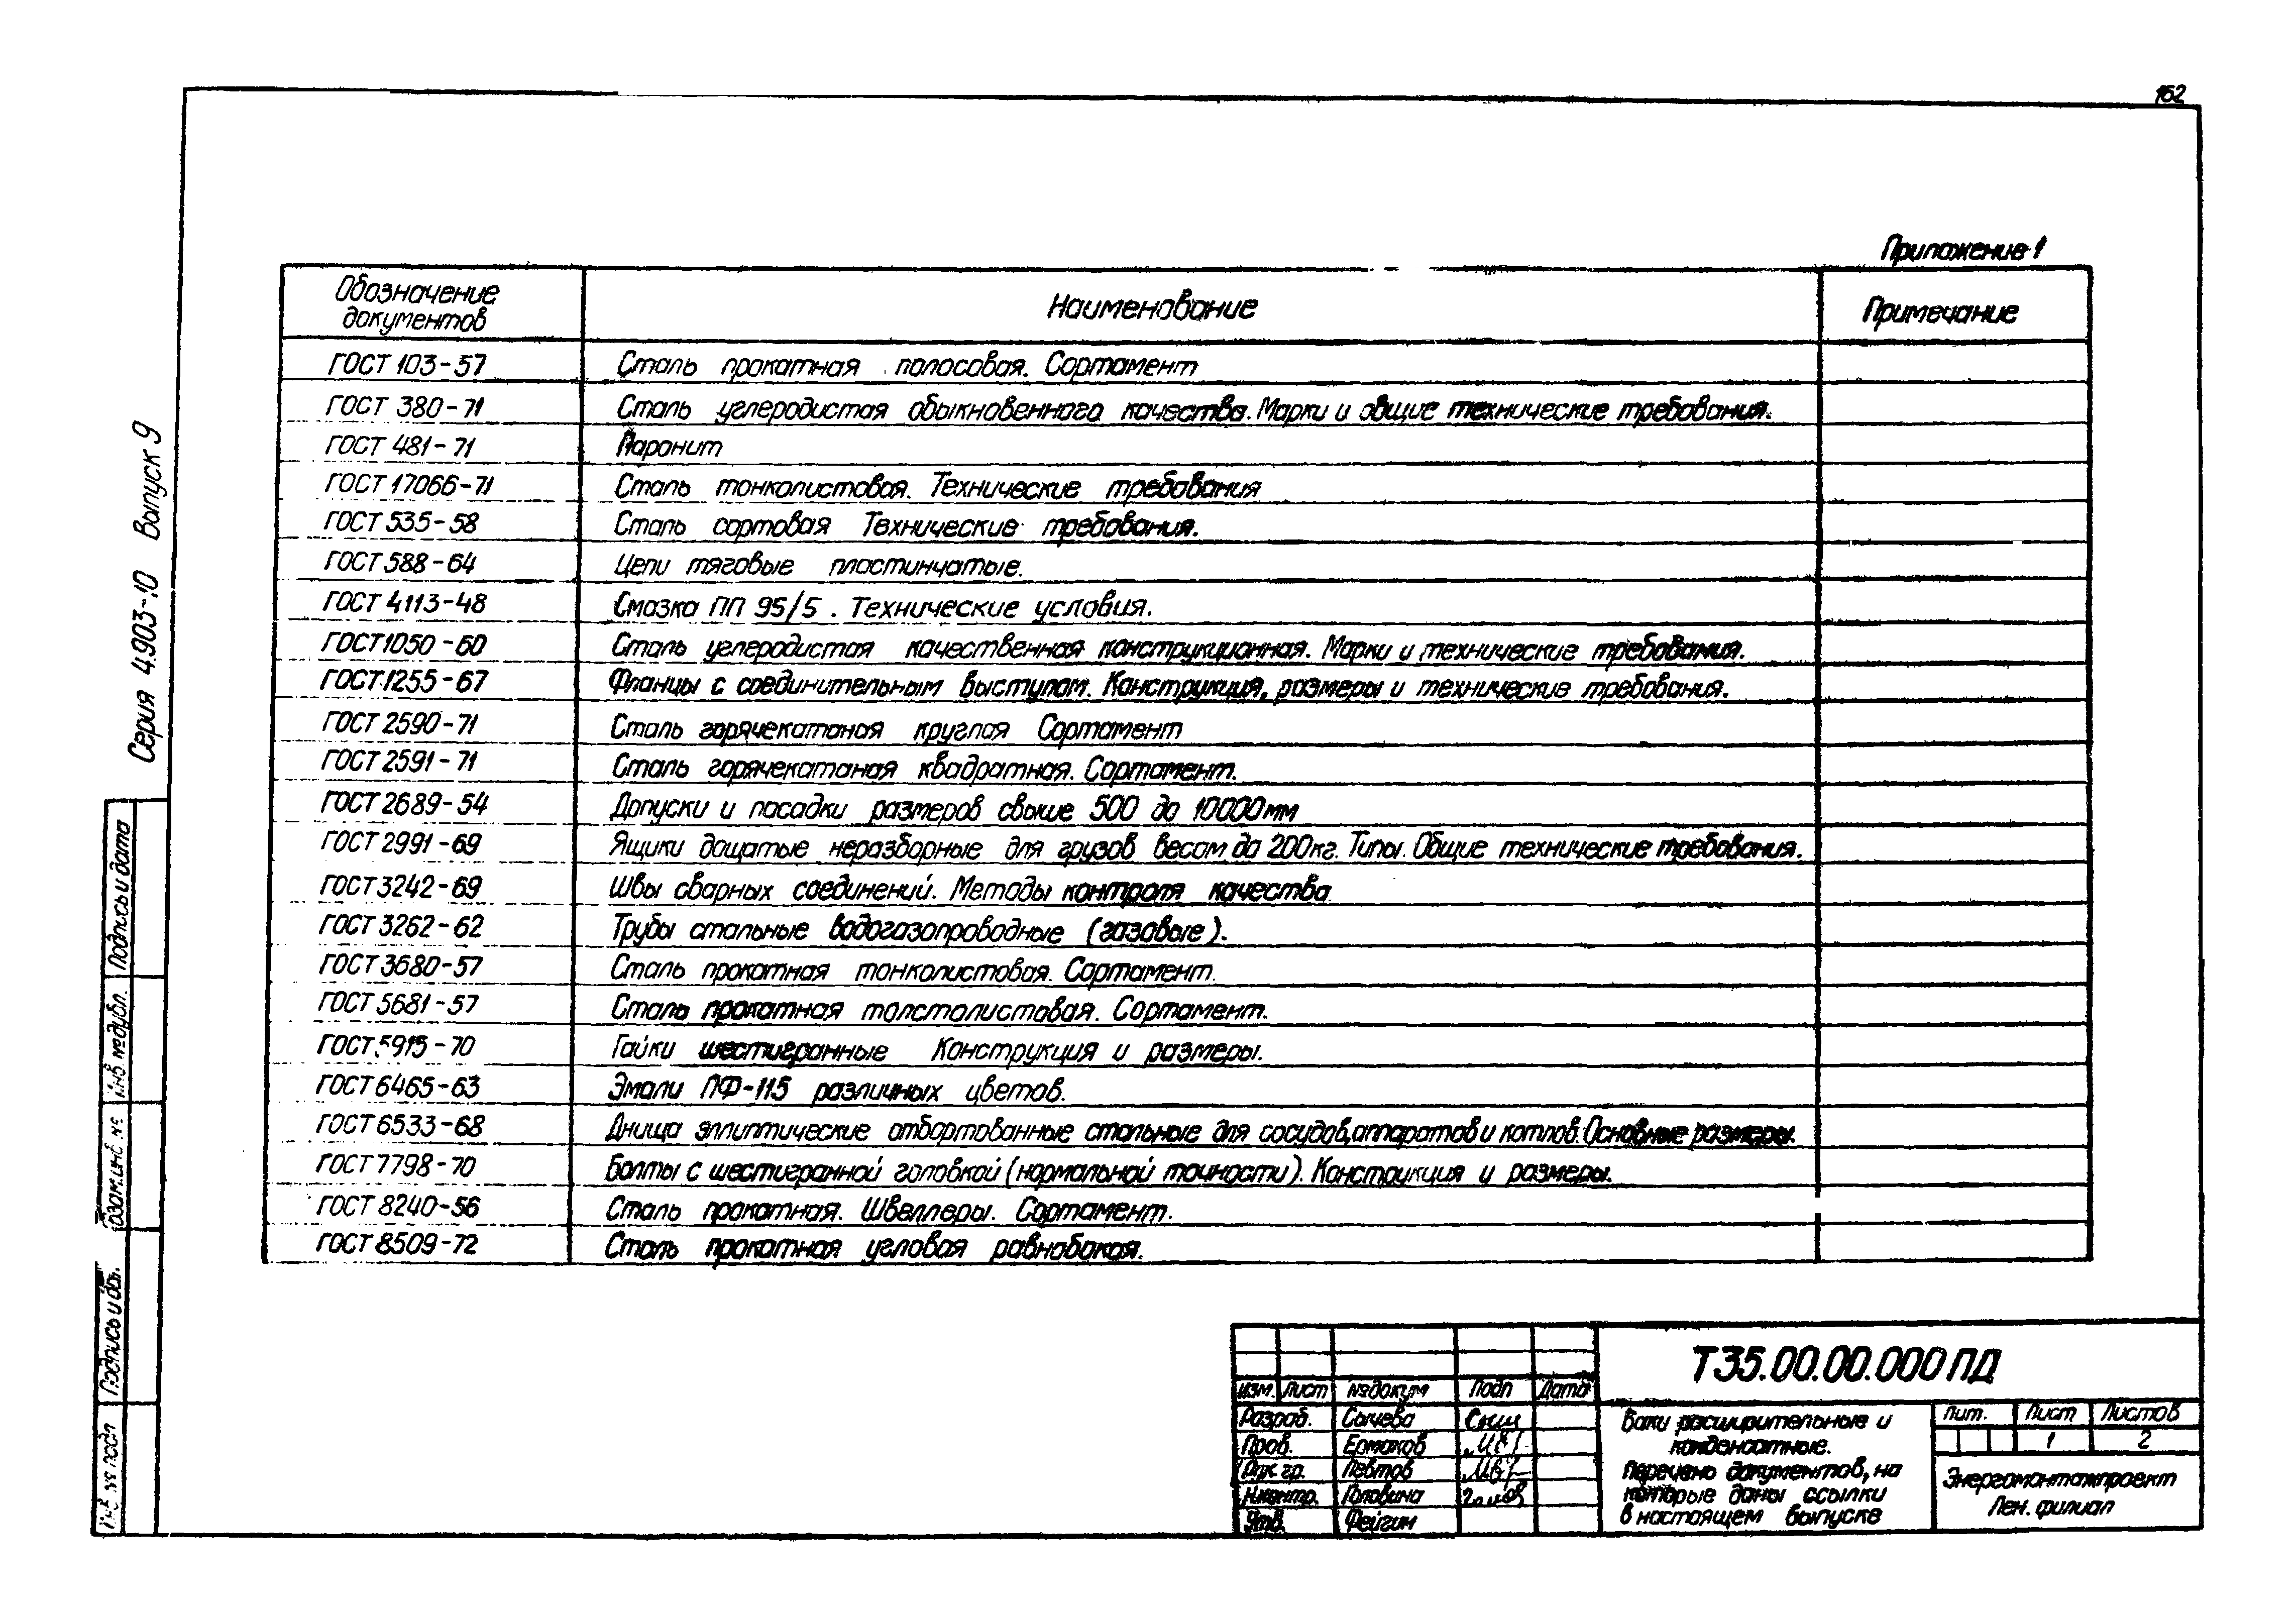 162
Приложение 1
Обозначение документов Наименование Примечание
ГОСТ 103-57 Сталь прокатная полосовая. Сортамент
ГОСТ 380-71 Сталь углеродистая обыкновенного качества. Марки и общие технические требования.
ГОСТ 481-71 Паронит
ГОСТ 17066-71 Сталь тонколистовая. Технические требования
ГОСТ 535-58 Сталь сортовая Технические требования.
ГОСТ 588-64 Цепи тяговые пластинчатые.
ГОСТ 4113-48 Смазка ПП 95/5. Технические условия.
ГОСТ 1050-60 Сталь углеродистая качественная конструкционная. Марки и технические требования.
ГОСТ 1255-67 Фланцы с соединительным выступом. Конструкция, размеры и технические требования.
ГОСТ 2590-71 Сталь горячекатаная круглая Сортамент
ГОСТ 2591-71 Сталь горячекатаная квадратная. Сортамент.
ГОСТ 2689-54 Допуски и посадки размеров свыше 500 до 10000мм
ГОСТ 2991-69 Ящики дощатые неразборные для грузов весом до 200кг. Типы. Общие технические требования.
ГОСТ 3242-69 Швы сварных соединений. Методы контроля качества.
ГОСТ 3262-62 Трубы стальные водогазопроводные (газовые).
ГОСТ 3680-57 Сталь прокатная тонколистовая. Сортамент.
ГОСТ 5681-57 Сталь прокатная толстолистовая. Сортамент.
ГОСТ 5915-70 Гайки шестигранные Конструкция и размеры.
ГОСТ 6465-63 Эмали ПФ-115 различных цветов.
ГОСТ 6533-68 Днища эллиптические отбортованные стальные для сосудов, аппаратов и котлов. Основные размеры.
ГОСТ 7798-70 Болты с шестигранной головкой (нормальной точности). Конструкция и размеры.
ГОСТ 8240-56 Сталь прокатная. Швеллеры. Сортамент.
ГОСТ 8509-72 Сталь прокатная угловая равнобокая.
Серия 4.903-10 Выпуск 9
Подпись и дата
Инв № дубл.
Взам. инв №
Подпись и да.
Инв № подл
Т35.00.00.000 ПД
Изм. Лист № докум Подп Дата
Разраб. Сычева
Пров. Ермаков
Рук гр. Левтов
Н.контр. Головина
Утв. Фейгин
Баки расширительные и
конденсатные.
Перечень документов, на
которые даны ссылки
в настоящем выпуске
Лит. Лист Листов
1 2
Энергомонтажпроект
Лен. филиал